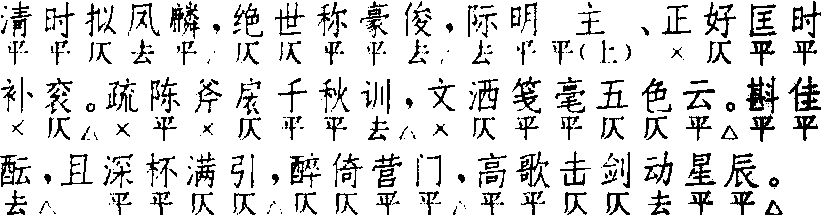 清时拟凤麟，绝世称豪俊，际明主、正好匡时
平平仄去平，仄仄平平去，去平平（上）×仄平平
补衮。疏陈斧扆千秋训，文洒笺毫五色云。斟佳
×仄△×平×仄平平去△×仄平平仄仄平△平平
酝，且深杯满引，醉倚营门，高歌击剑动星辰。
去△平平仄仄仄仄平平平平仄仄去平平△